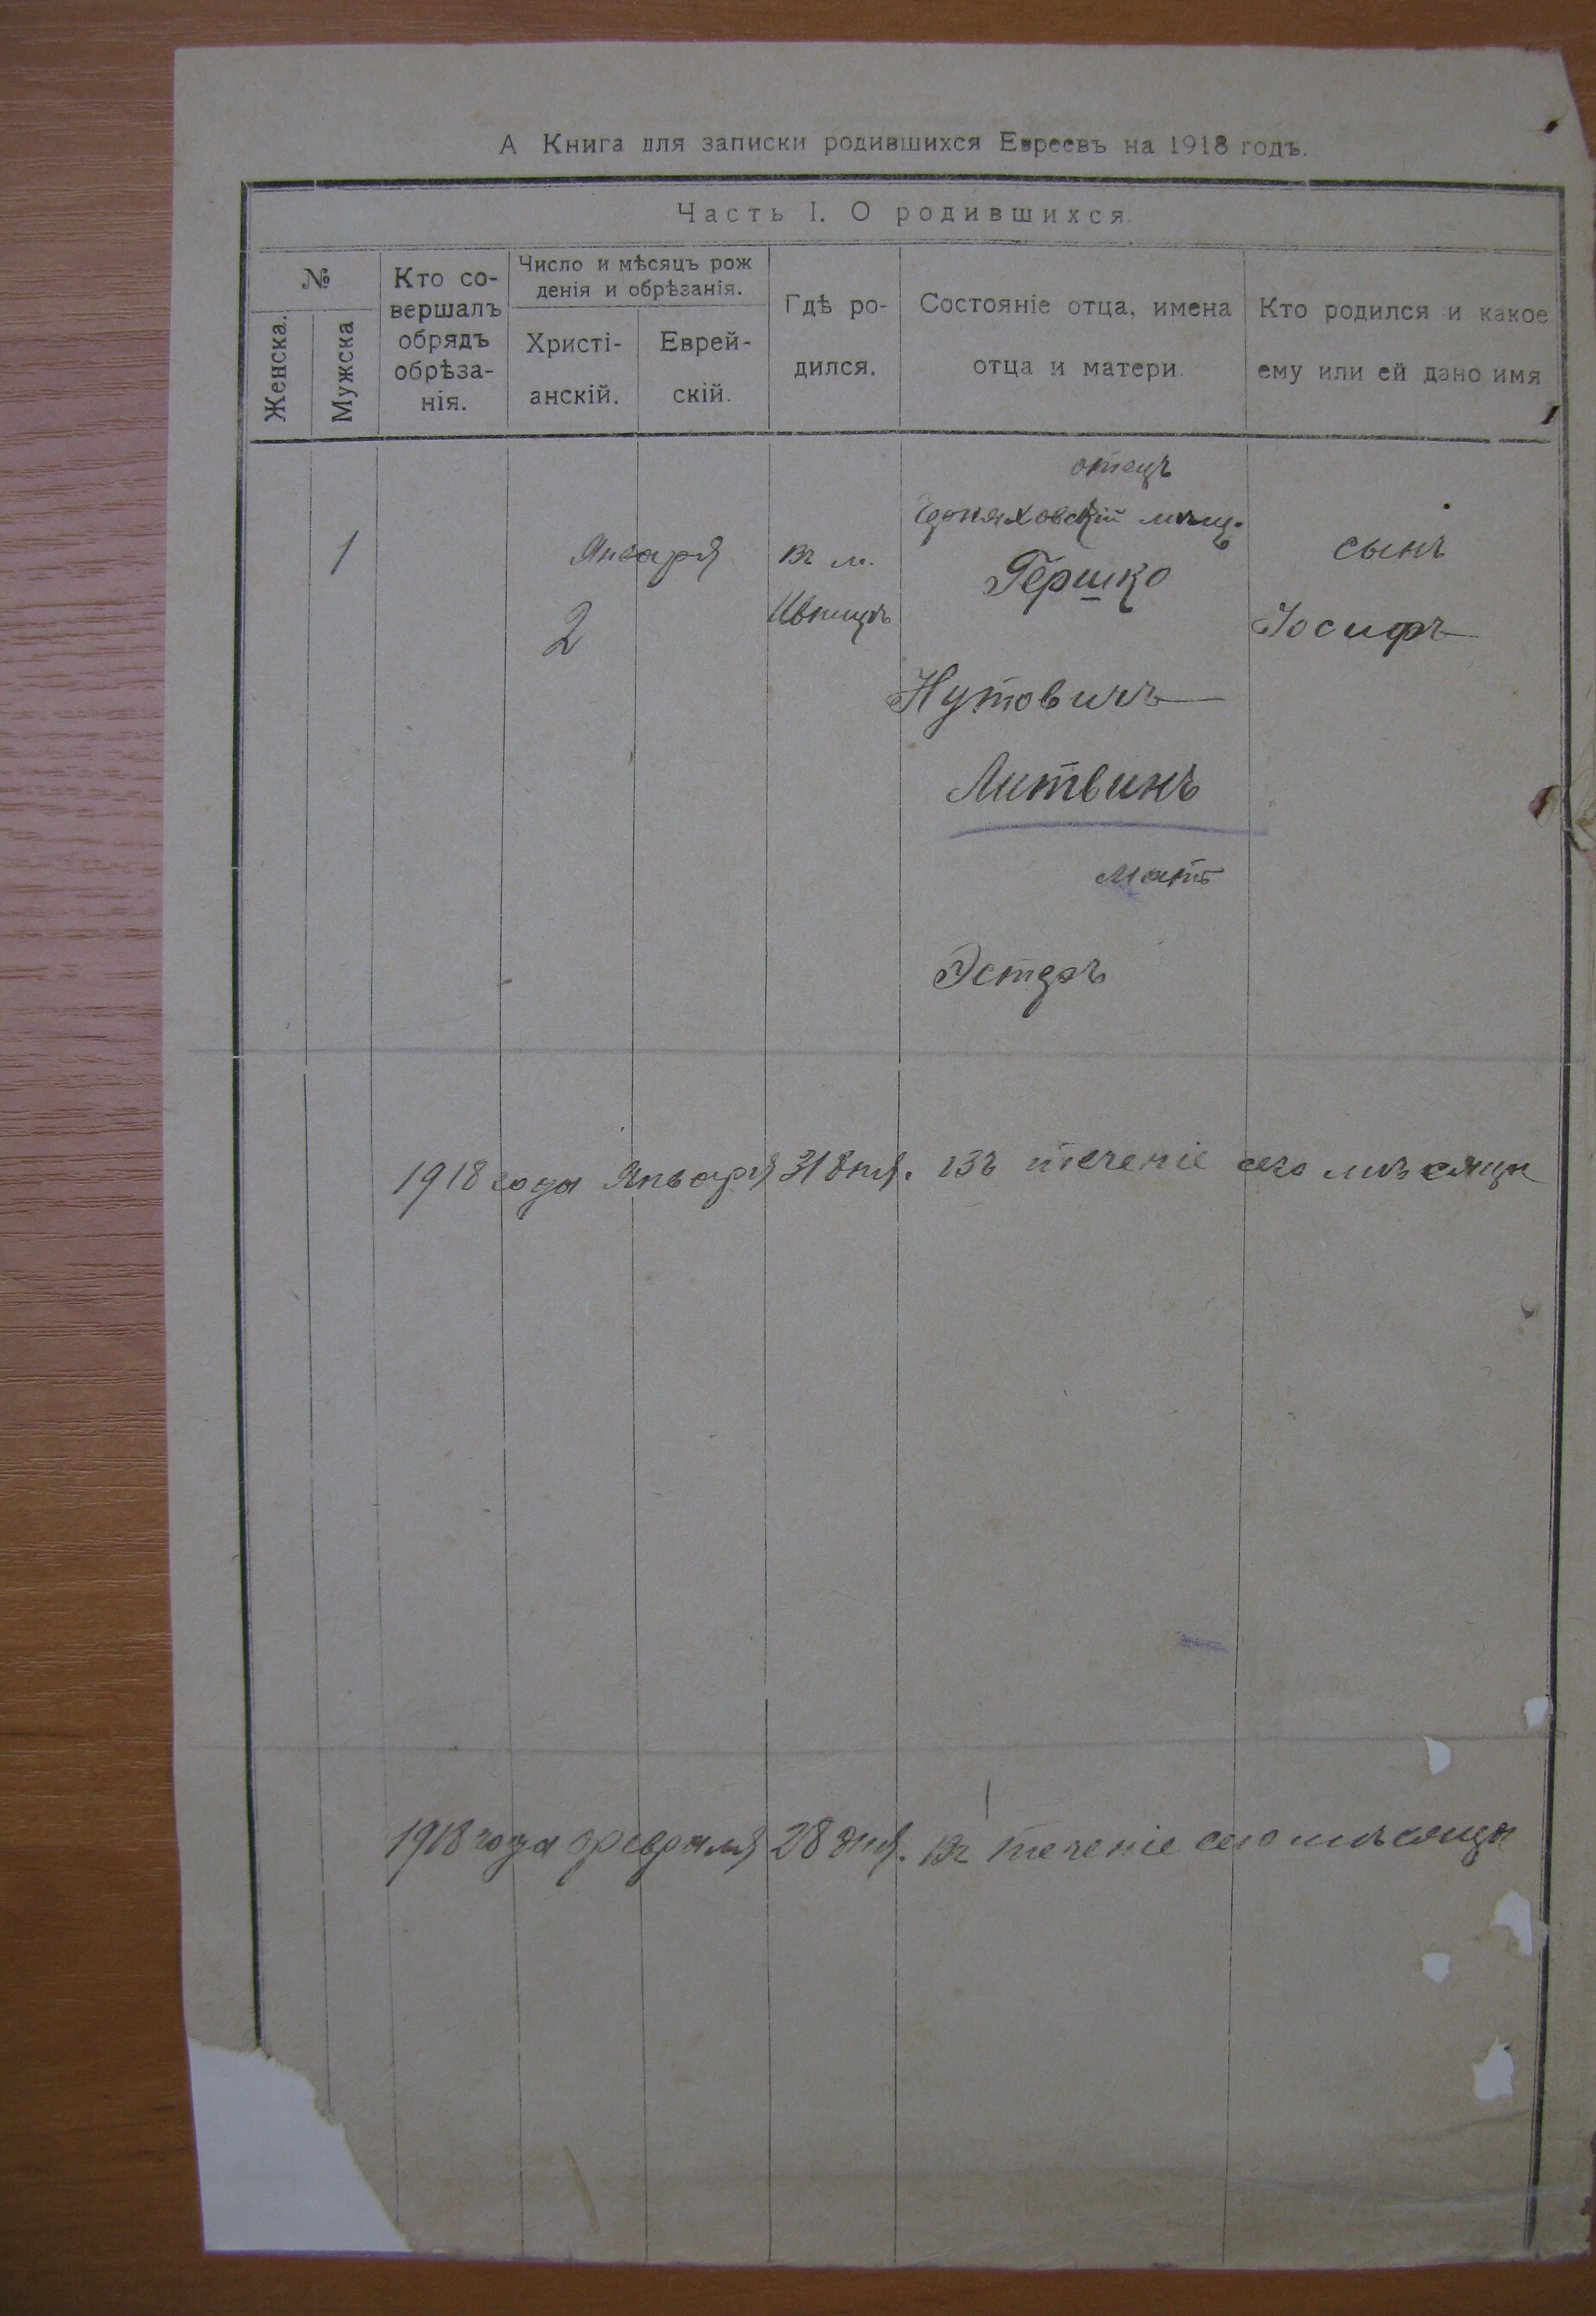 А Книга для записки родившихся Евреевъ на 1918 годъ.
Часть I. О родившихся
№
Женска.
Мужска
Кто со-
вершалъ
обрядъ
обрѣза-
нія.
Число и мѣсяцъ рож
денія и обрѣзанія.
Христі-
анскій.
Еврей-
скій.
Гдѣ ро-
дился.
Состояніе отца, имена
отца и матери.
Кто родился и какое
ему или ей дано имя
1
Января
2
въ м.
отецъ
Черняховскій мѣщ.
Гершко
Нутовичъ
Литвинъ
мать
Эстеръ
сынъ
Іосифъ
1918 года Января 31 дня. въ теченіе сего мѣсяца
1918 года февраля 28 дня. въ теченіе сего мѣсяца